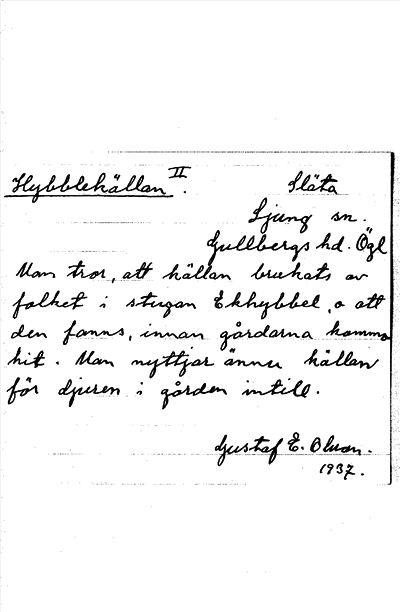 Hybblekällan II.
Släta
Ljung sn.
Gullbergs hd. Ögl
Man tror, att källan brukats av
folket i stugan Ekhybbel, o att
den fanns, innan gårdarna kommo
hit. Man nyttjar ännu källan
för djuren i gården intill.
Gustaf E. Olsson.
1937.